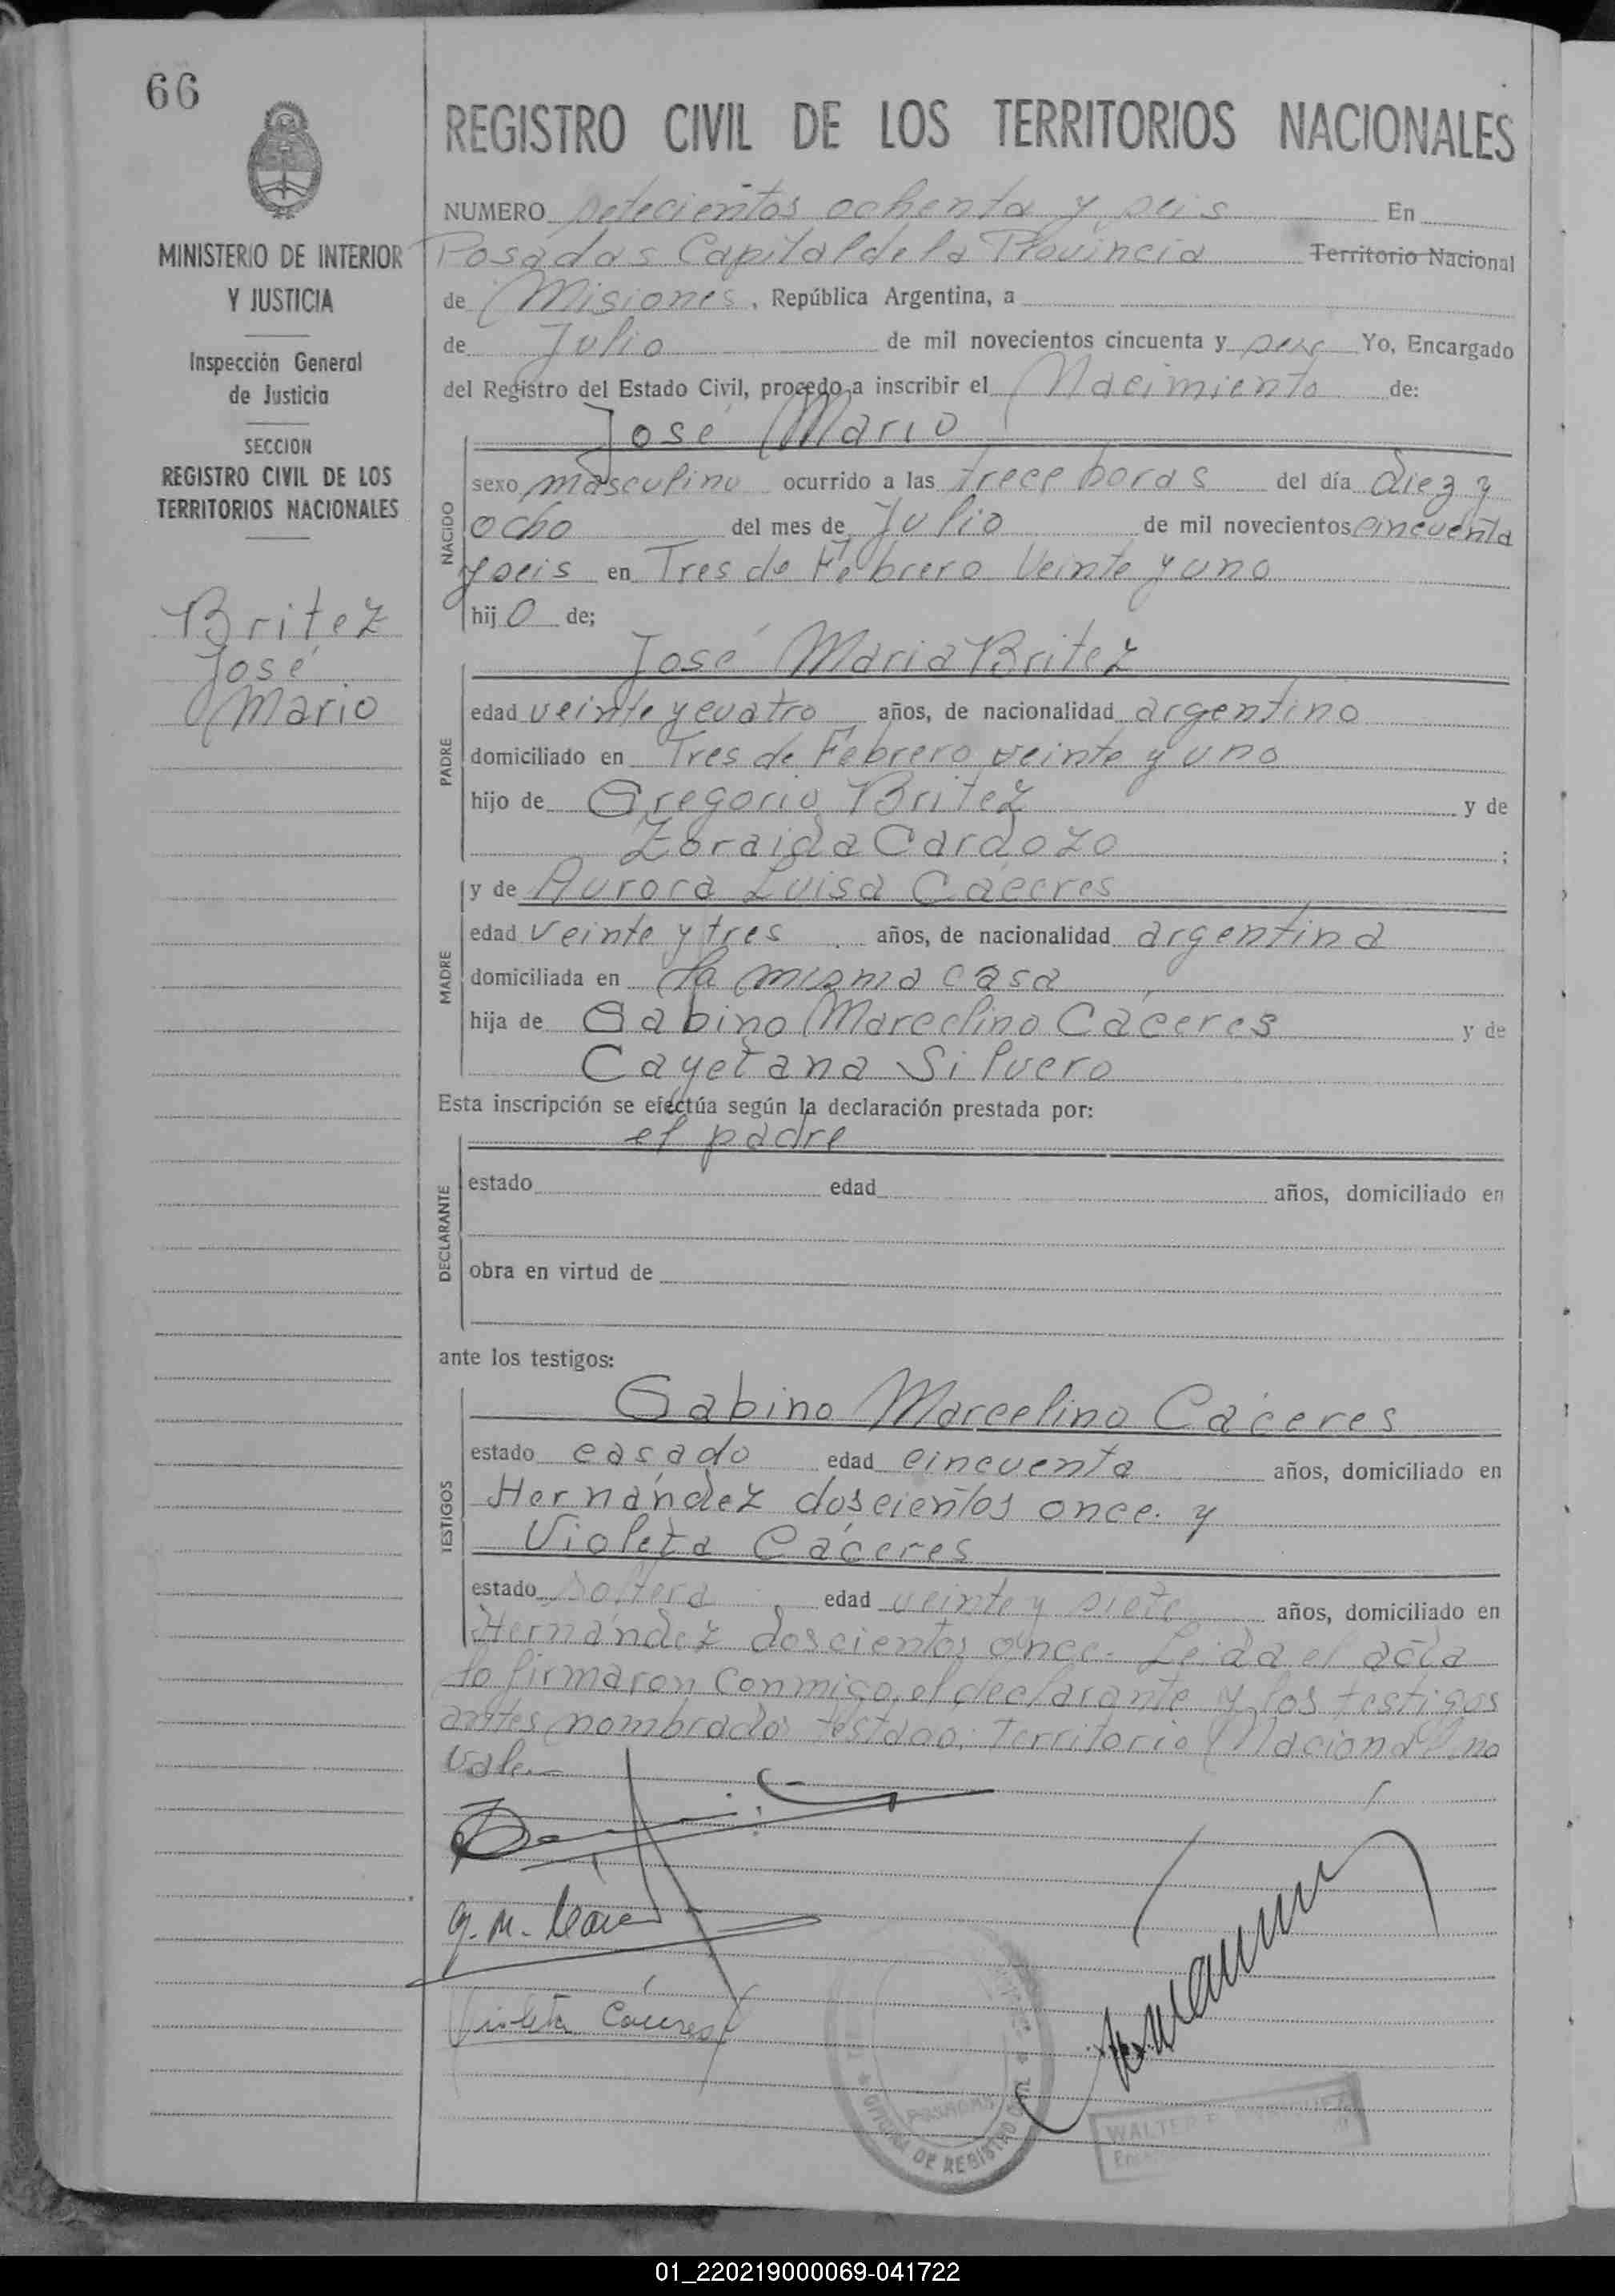 66
MINISTERIO DE INTERIOR
Y JUSTICIA
Inspección General
de Justicia
SECCION
REGISTRO CIVIL DE LOS
TERRITORIOS NACIONALES
Britez
José
Mario
REGISTRO CIVIL DE LOS TERRITORIOS NACIONALES
NUMERO setecientos ochenta y seis En
Posadas Capital de la Provincia Territorio Nacional
de Misiones, República Argentina, a
de Julio de mil novecientos cincuenta y seis Yo, Encargado
del Registro del Estado Civil, procedo a inscribir el Nacimiento de:
José Mario
NACIDO
sexo masculino ocurrido a las trece horas del día diez y
ocho del mes de Julio de mil novecientos cincuenta
y seis en Tres de Febrero Veinte y uno
hijo de;
José Maria Britez
PADRE
edad veinte y cuatro años, de nacionalidad argentino
domiciliado en Tres de Febrero veinte y uno
hijo de Gregorio Britez y de
Zoraida Cardozo ;
y de Aurora Luisa Cáceres
MADRE
edad veinte y tres años, de nacionalidad argentina
domiciliada en la misma casa
hija de Gabino Marcelino Cáceres y de
Cayetana Silvero
Esta inscripción se efectúa según la declaración prestada por:
el padre
DECLARANTE
estado edad años, domiciliado en
obra en virtud de
ante los testigos:
Gabino Marcelino Cáceres
TESTIGOS
estado casado edad cincuenta años, domiciliado en
Hernández doscientos once. y
Violeta Cáceres
estado soltera edad veinte y siete años, domiciliado en
Hernández doscientos once. Leida el acta
la firmaron conmigo, el declarante y los testigos
antes nombrados testado: Territorio Nacional no
vale.
Violeta Cáceres
POSADAS
OFICINA DE REGISTRO
WALTER
01_220219000069-041722